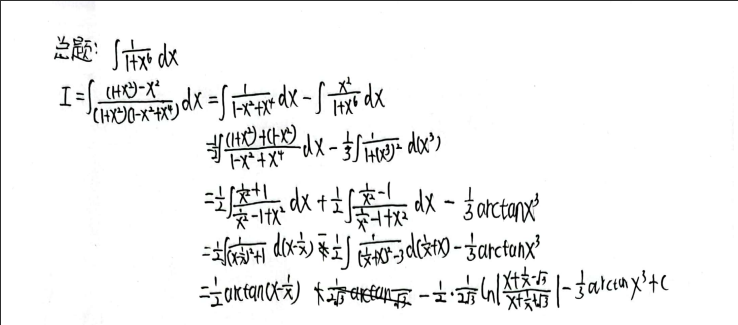 总题: ∫ 1/(1+x⁶) dx
I = ∫ ((1+x²)-x²)/((1+x²)(1-x²+x⁴)) dx = ∫ 1/(1-x²+x⁴) dx - ∫ x²/(1+x⁶) dx
= 1/2 ∫ ((1+x²)+(1-x²))/(1-x²+x⁴) dx - 1/3 ∫ 1/(1+(x³)²) d(x³)
= 1/2 ∫ (1/x²+1)/(1/x²-1+x²) dx + 1/2 ∫ (1/x²-1)/(1/x²-1+x²) dx - 1/3 arctanx³
= 1/2 ∫ 1/((x-1/x)²+1) d(x-1/x) - 1/2 ∫ 1/((1/x+x)²-3) d(1/x+x) - 1/3 arctanx³
= 1/2 arctan(x-1/x) - 1/2 · 1/(2√3) ln|(x+1/x-√3)/(x+1/x+√3)| - 1/3 arctan x³ + C